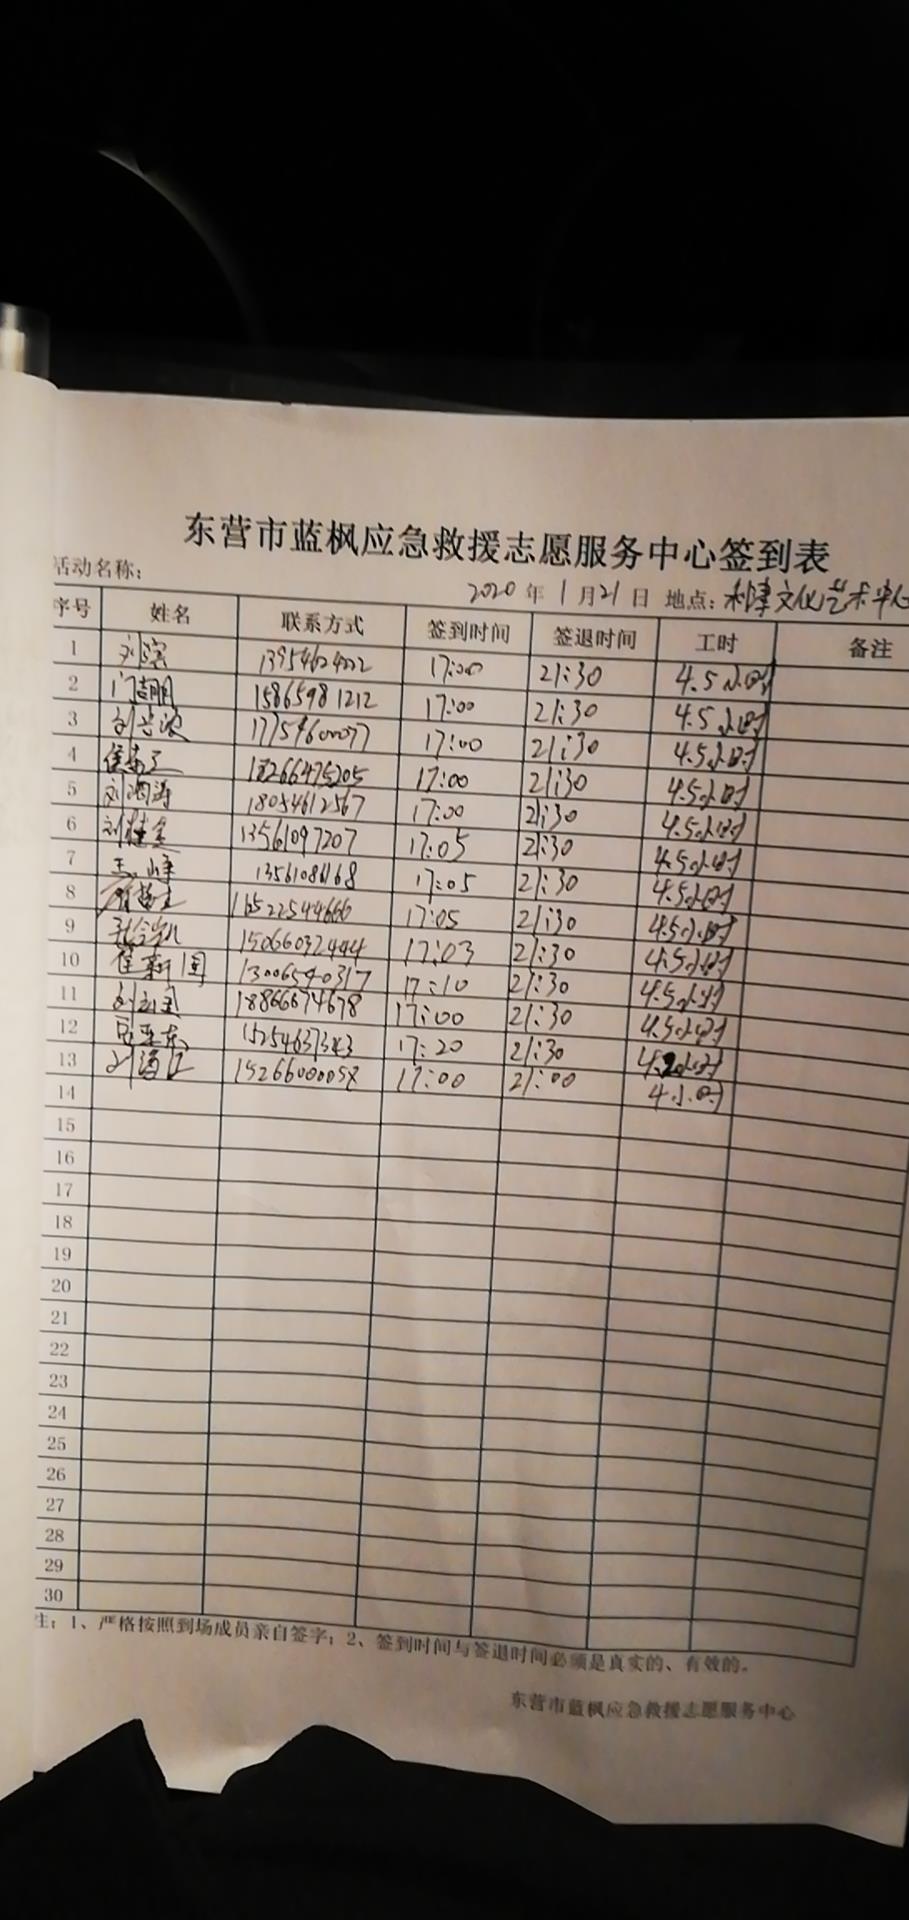 东营市蓝枫应急救援志愿服务中心签到表
活动名称： 2020 年 1 月 21 日 地点：利津文化艺术中心
序号 姓名 联系方式 签到时间 签退时间 工时 备注
1 刘滨 17:00 21:30 4.5小时
2 门吉朋 15865981212 17:00 21:30 4.5小时
3 17754600077 17:00 21:30 4.5小时
4 18266475205 17:00 21:30 4.5小时
5 刘润涛 18054612567 17:00 21:30 4.5小时
6 13561097207 17:05 21:30 4.5小时
7 13561086168 17:05 21:30 4.5小时
8 16522544666 17:05 21:30 4.5小时
9 15066032444 17:03 21:30 4.5小时
10 崔新国 13006540317 17:10 21:30 4.5小时
11 18866674678 17:00 21:30 4.5小时
12 17:20 21:30 4.2小时
13 刘海江 15266000058 17:00 21:00 4小时
14
15
16
17
18
19
20
21
22
23
24
25
26
27
28
29
30
注：1、严格按照到场成员亲自签字；2、签到时间与签退时间必须是真实的、有效的。
东营市蓝枫应急救援志愿服务中心